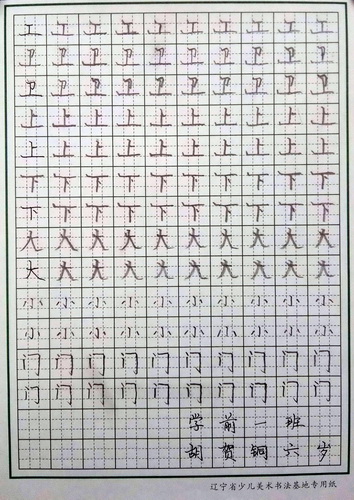 工工工工工工工工工工
卫卫卫卫卫卫卫卫卫卫
卫卫卫卫卫卫卫卫卫卫
上上上上上上上上上上
上上上上上上上上上上
下下下下下下下下下下
下下下下下下下下下下
大大大大大大大大大大
大大大大大大大大大大
小小小小小小小小小小
小小小小小小小小小小
门门门门门门门门门门
门门门门门门门门门门
学前一班
胡贺铜六岁
辽宁省少儿美术书法基地专用纸